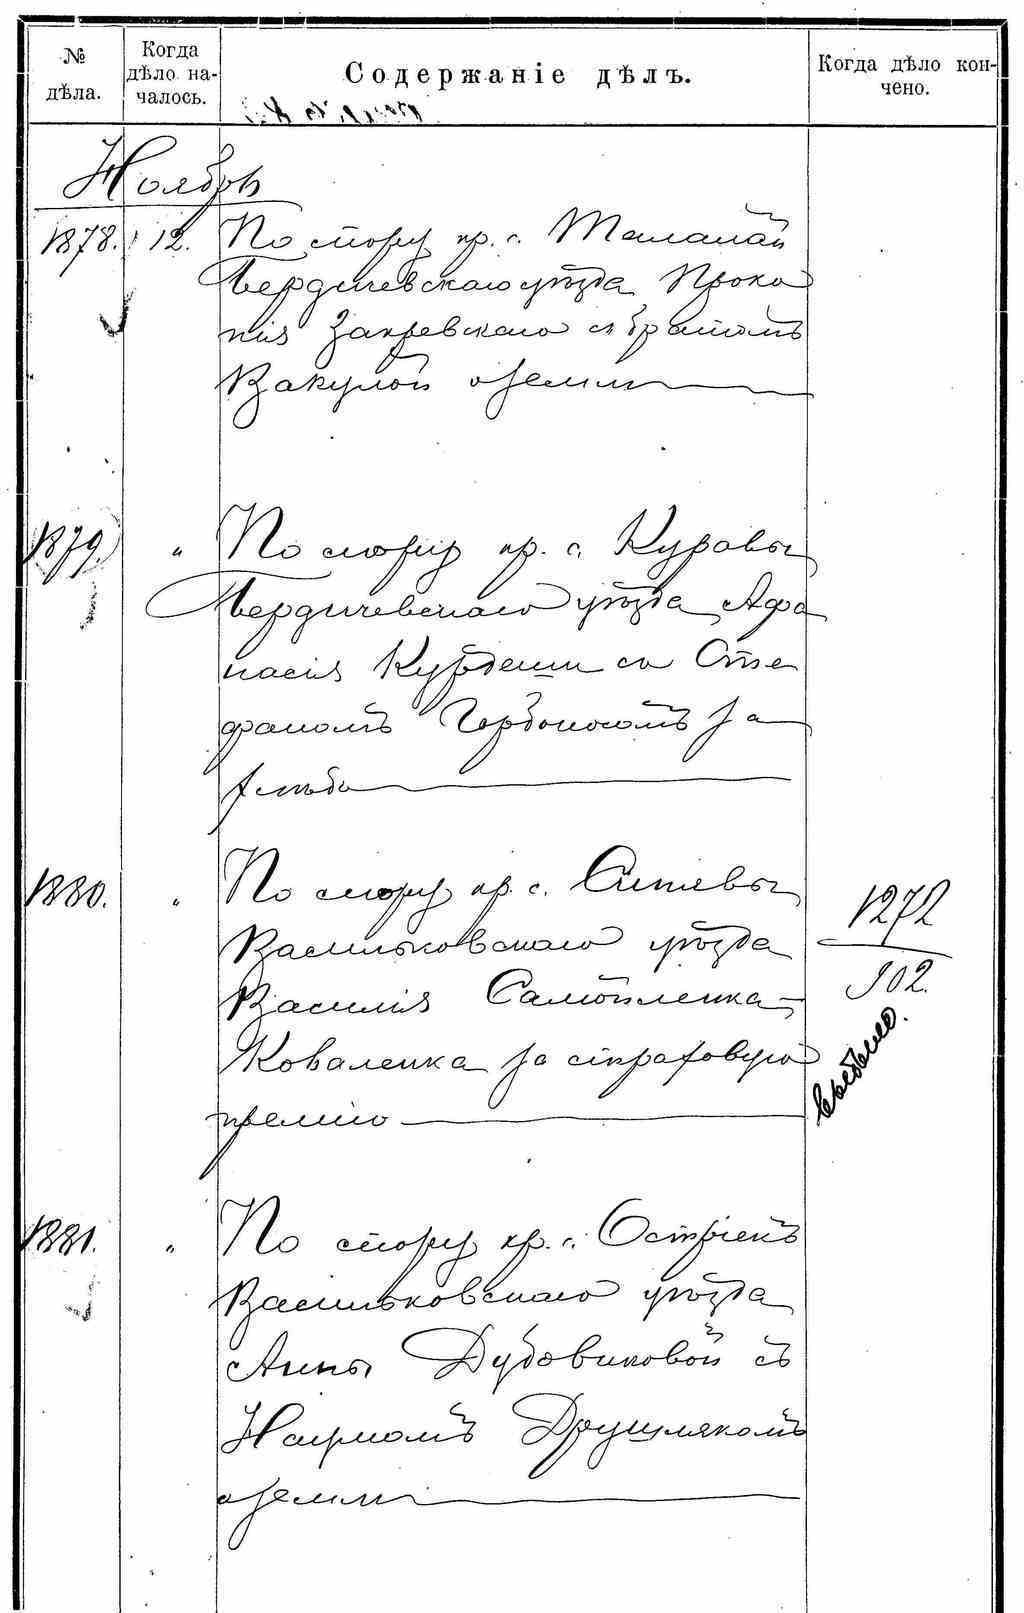 № дѣла.
Когда дѣло началось.
Содержаніе дѣлъ.
Когда дѣло кончено.
Ноябрь
1878. 12. По спору кр. с. Маламай
Бердичевскаго уѣзда Проко
пія Закревскаго съ братомъ
Вакулой о земли
1879. " По спору кр. с.
Бердичевскаго уѣзда Афа
насія Курдеши со Сте
фаномъ за
1880. " По спору кр. с.
Васильковскаго уѣзда
Василія Самойленка
Коваленка за страховую
премію
1272
902.
выбыло.
1881. " По спору кр. с. Острiекъ
Васильковскаго уѣзда
Анны Дубовиковой съ
Наумомъ Друшлякомъ
о земли